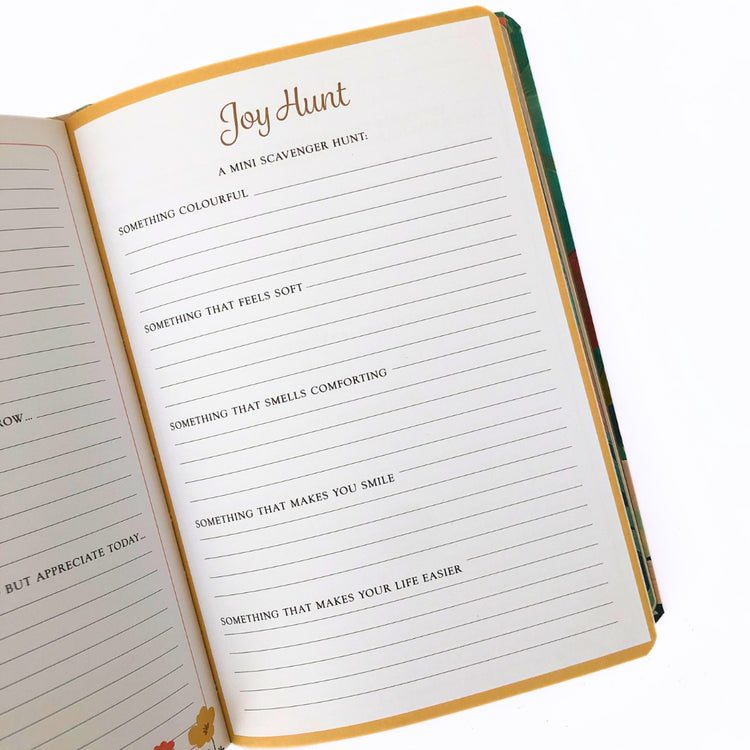 ROW...
BUT APPRECIATE TODAY...
Joy Hunt
A MINI SCAVENGER HUNT:
SOMETHING COLOURFUL
SOMETHING THAT FEELS SOFT
SOMETHING THAT SMELLS COMFORTING
SOMETHING THAT MAKES YOU SMILE
SOMETHING THAT MAKES YOUR LIFE EASIER